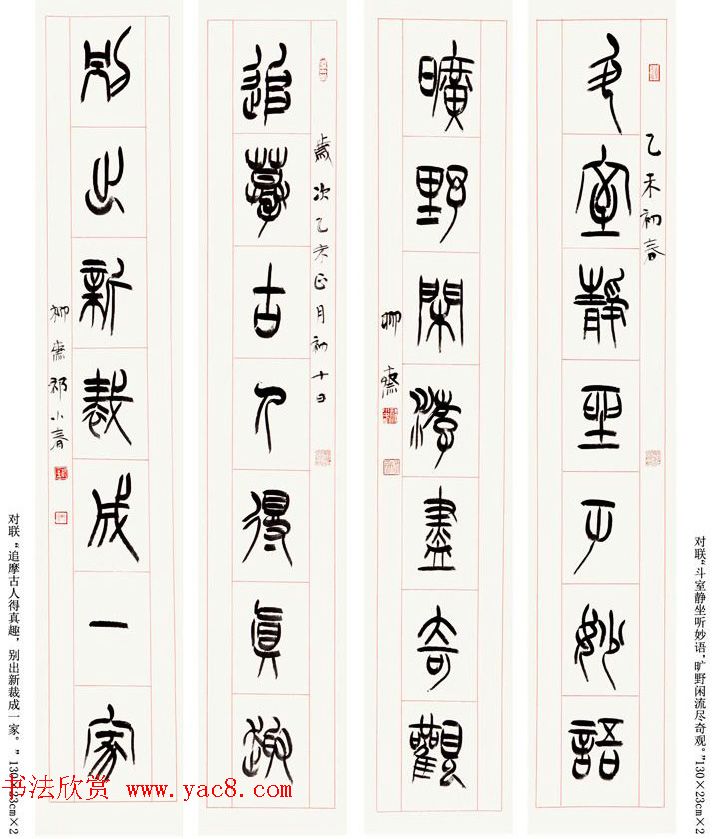 对联“斗室静坐听妙语,旷野闲流尽奇观。”130×23cm×2
乙未初春
斗室靜坐妙語
曠野閑游盡奇觀
柳齋
歲次乙未正月初十日
追摹古人得眞趣
別出新裁成一家
柳齋祁小春
对联“追摩古人得真趣,别出新裁成一家。”130×23cm×2
书法欣赏 www.yac8.com